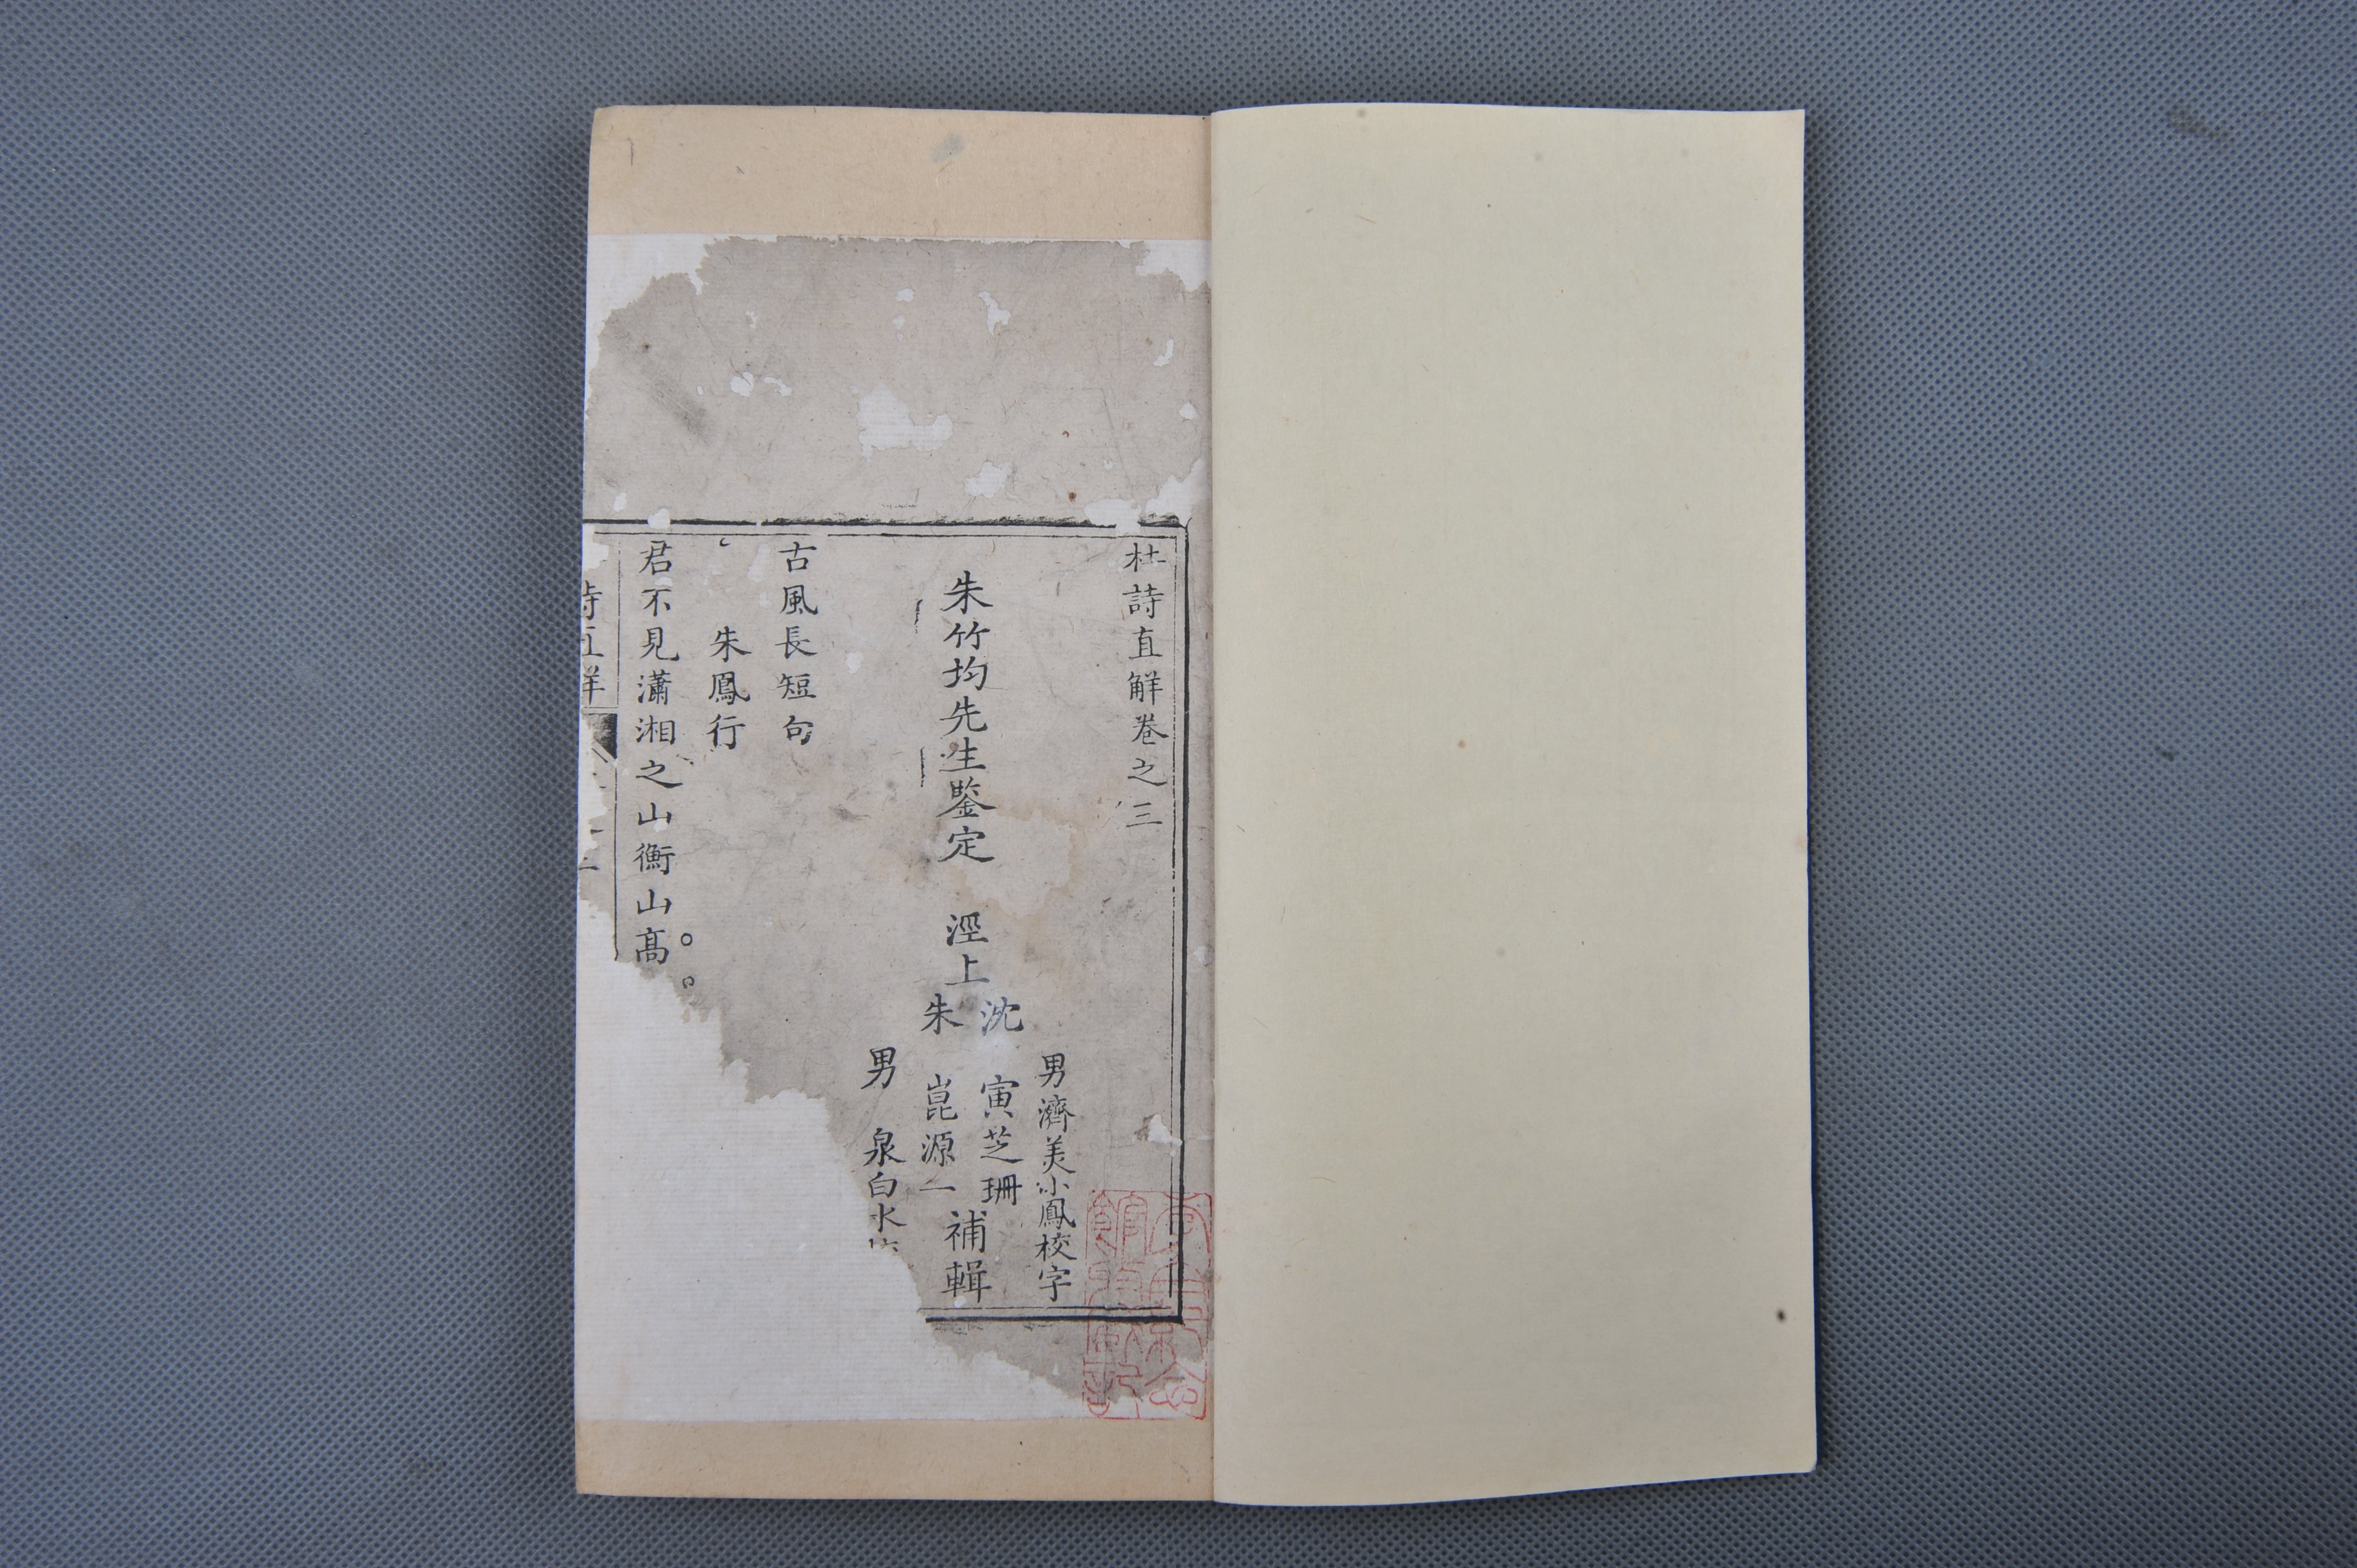 杜詩直解卷之三
男濟美小鳳校字
朱竹均先生鑒定 涇上
沈寅芝珊
朱崑源一
補輯
男泉白水
古風長短句
朱鳳行
君不見瀟湘之山衡山高
詩直解